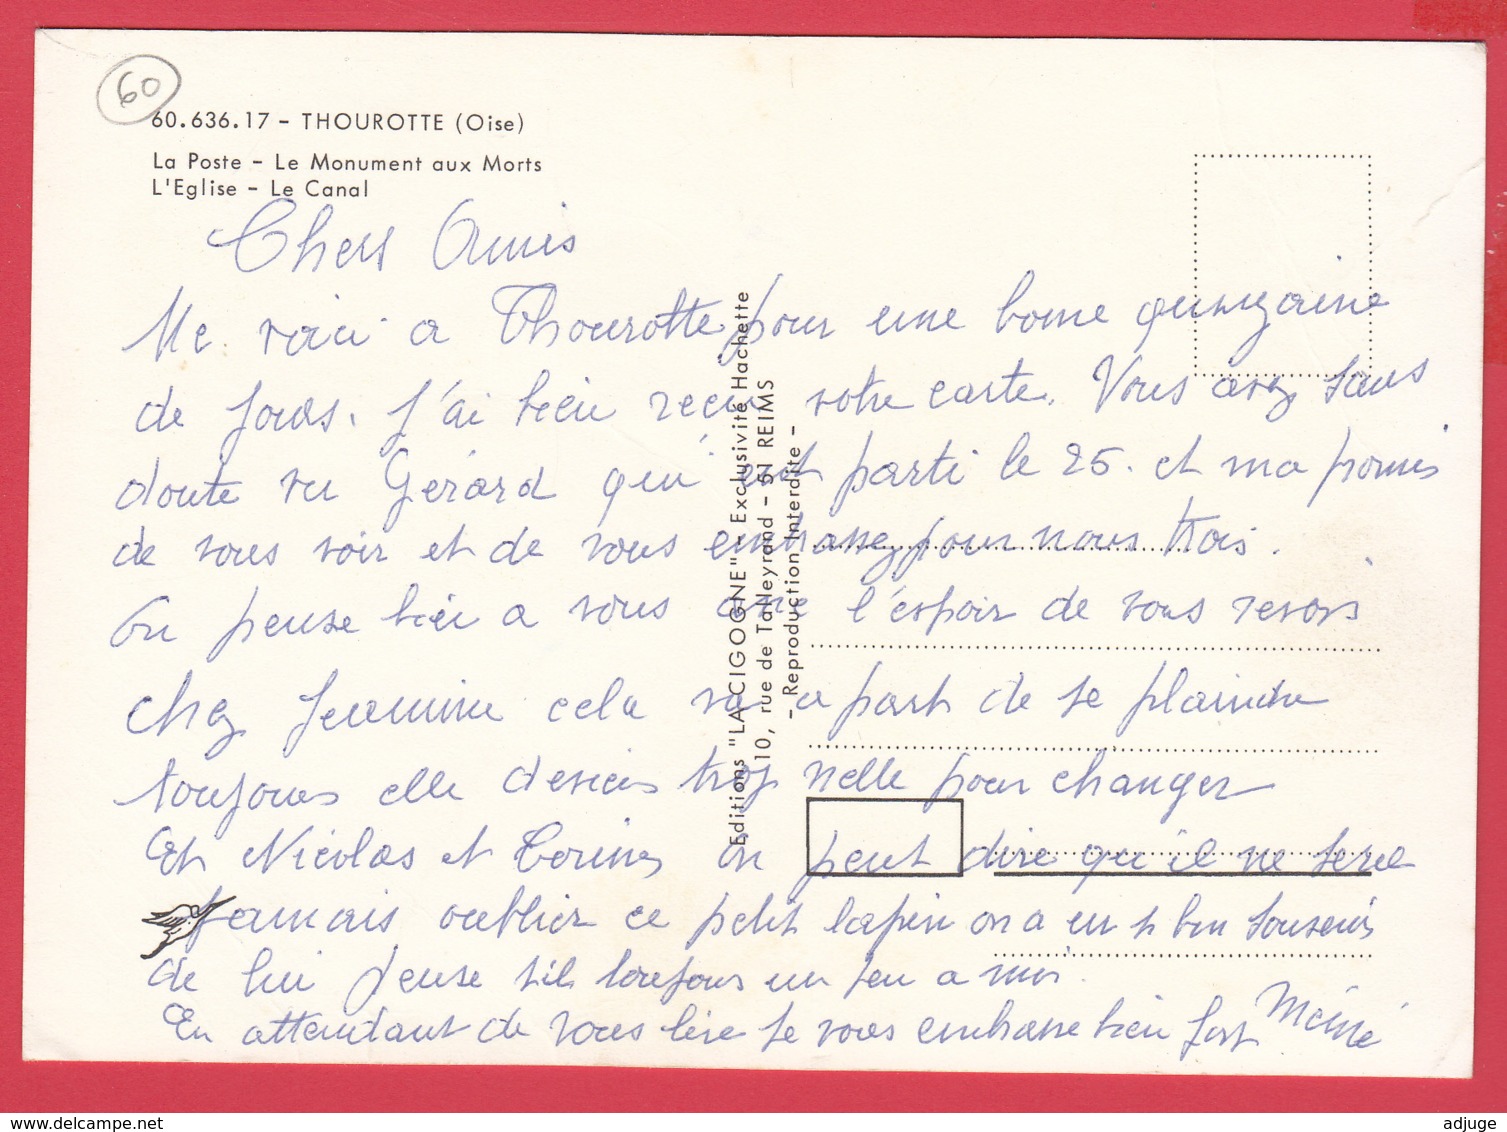 60
60.636.17 – THOUROTTE (Oise)
La Poste – Le Monument aux Morts
L'Eglise – Le Canal
Chers Amis
Me voici a Thourotte pour une bonne quinzaine
de jours. J'ai bien reçu votre carte. Vous avez sans
doute vu Gérard qui est parti le 25. et m'a promis
de vous voir et de vous embrasse pour nous trois.
On pense bien a vous avec l'espoir de vous revoir
chez Jeannine cela va a part de se plaindre
toujours elle deviens trop vielle pour changer
Et Nicolas et Corine on peut dire qu'il ne sera
jamais oublier ce petit lapin on a un si bon souvenir
de lui pense t'il toujours un peu a moi.
En attendant de vous lire je vous embrasse bien fort Mémé
Editions "LA CIGOGNE" – Exclusivité Hachette
10, rue de Talleyrand – 51 REIMS
– Reproduction Interdite –
delcampe.net
adjuge